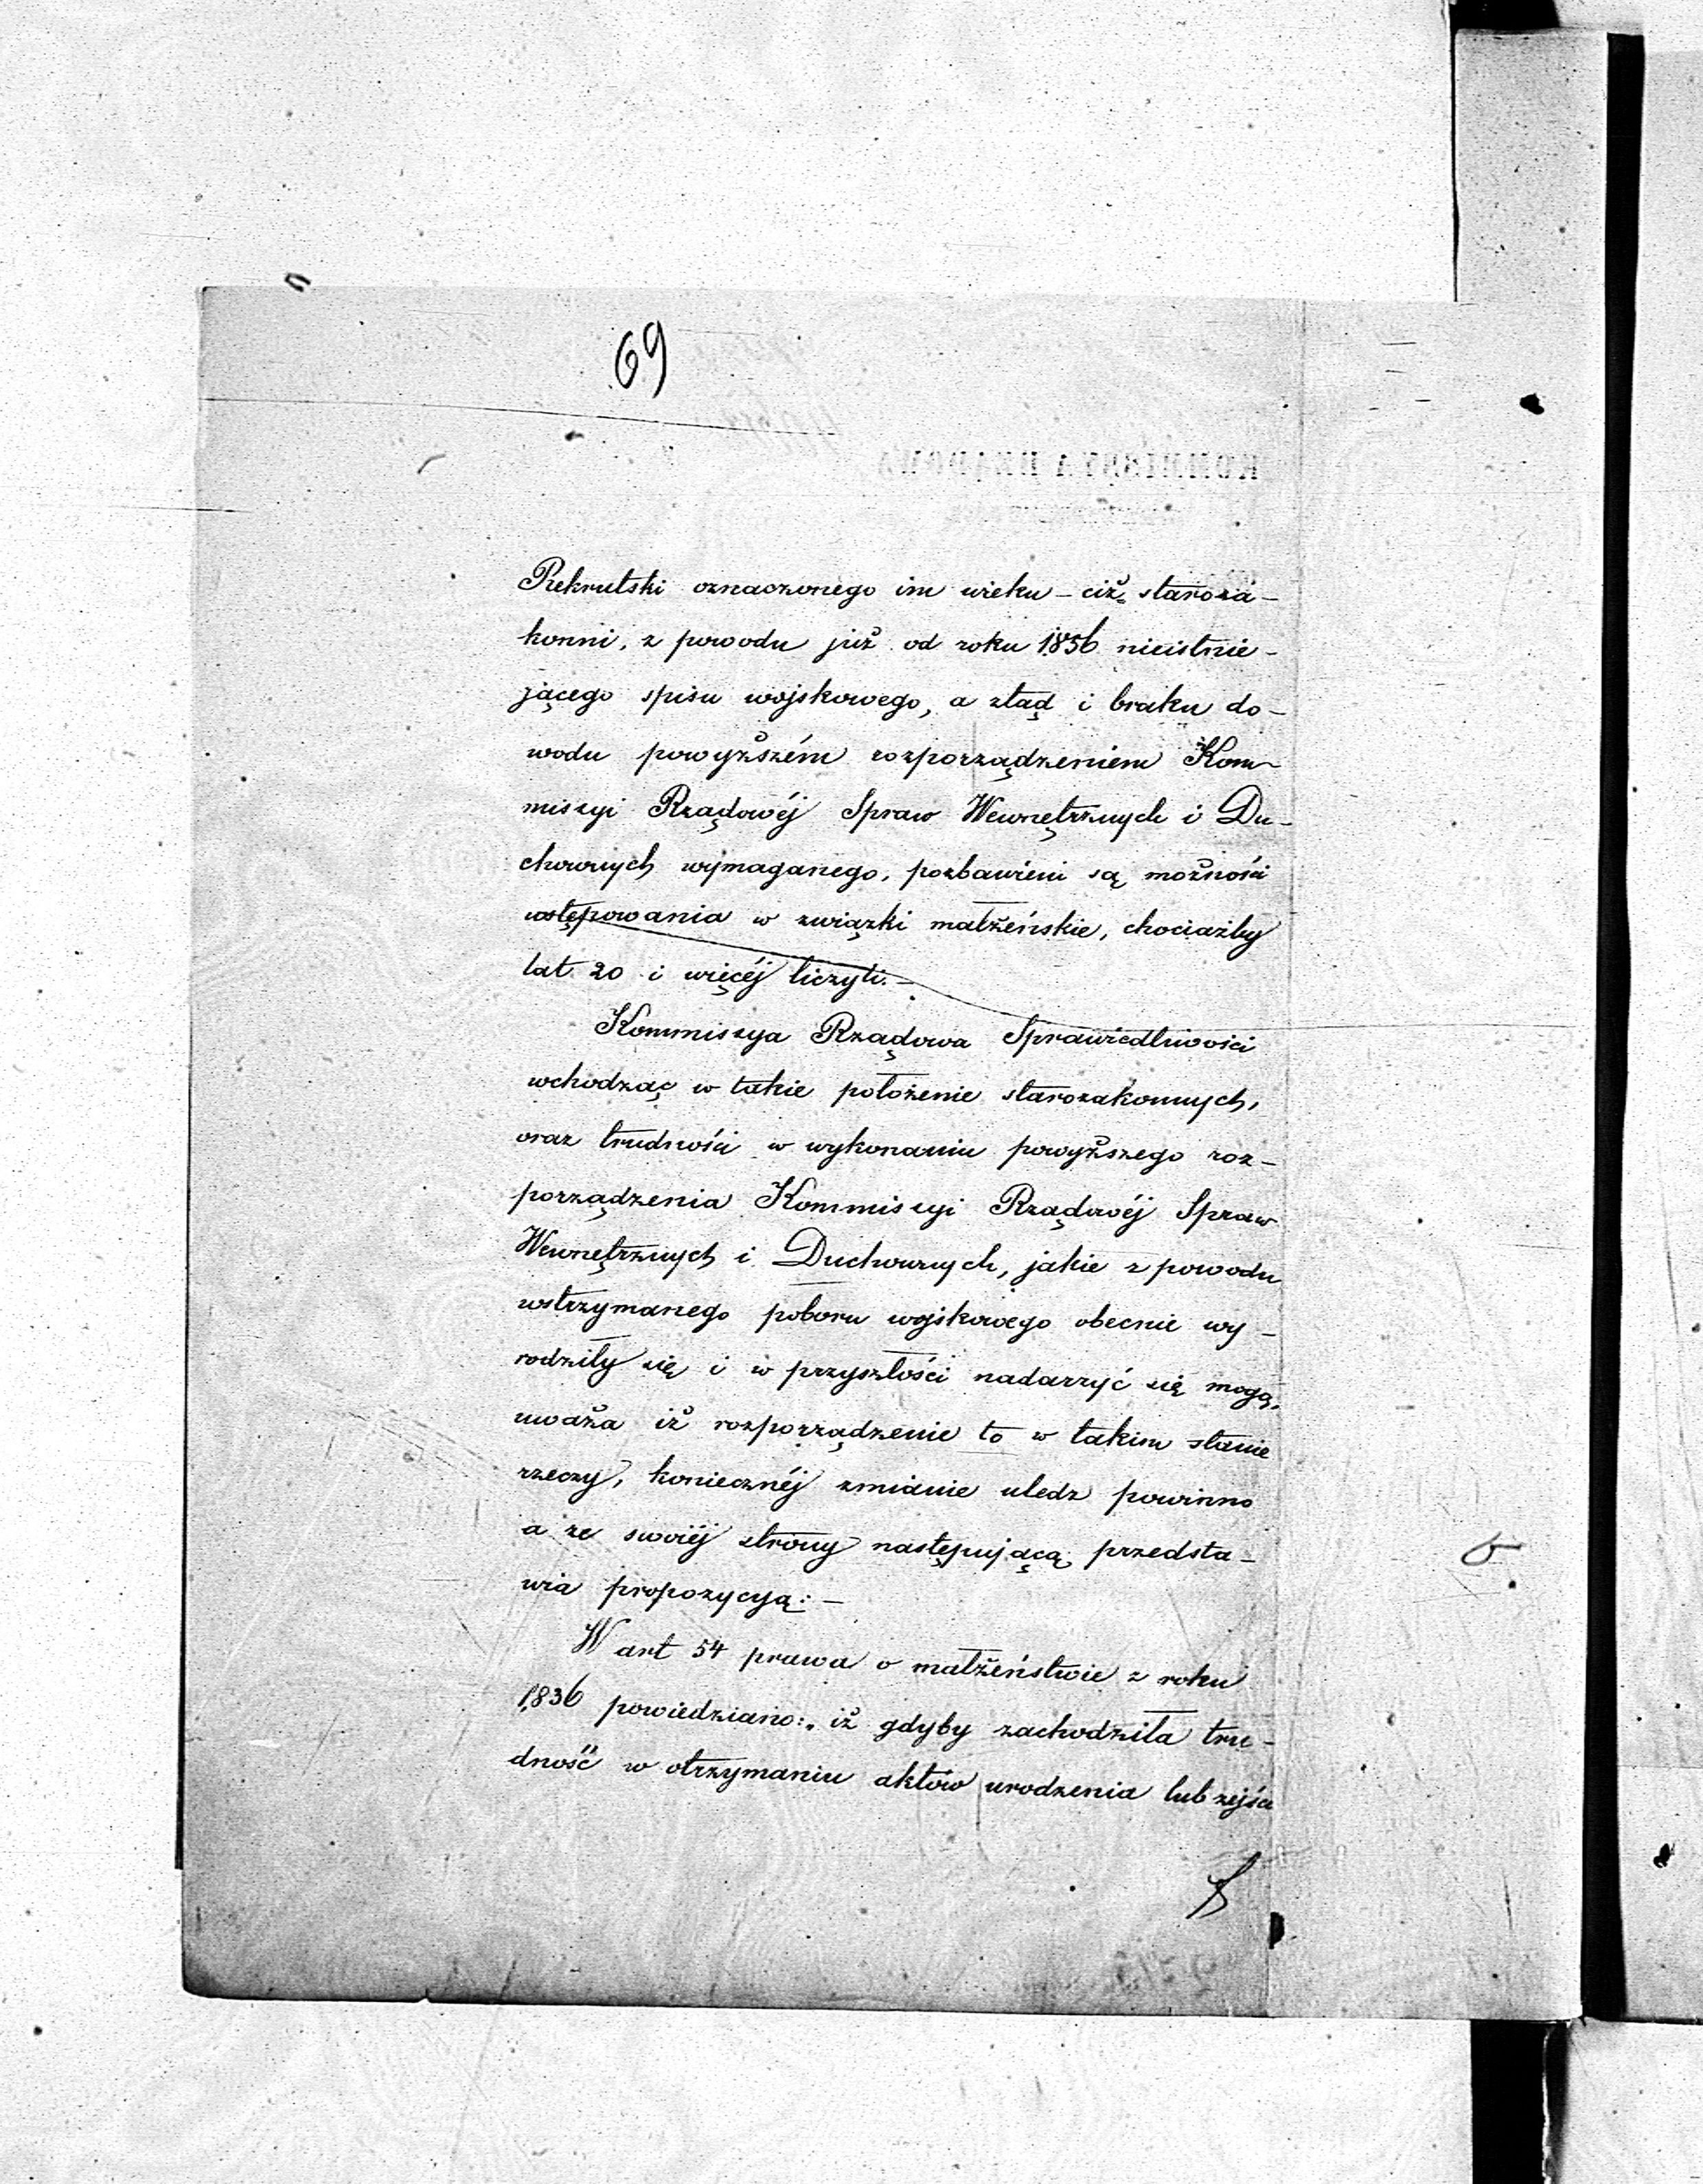 69
Rekrutski oznaczonego im wieku – ciż staroza-
konni, z powodu już od roku 1856 nieistnie-
jącego spisu wojskowego, a ztąd i braku do-
wodu powyższém rozporządzeniem Kom-
missyi Rządowéj Spraw Wewnętrznych i Du-
chownych wymaganego, pozbawieni są możności
wstępowania w związki małżeńskie, chociażby
lat 20 i więcéj liczyli. –
Kommissya Rządowa Sprawiedliwości
wchodząc w takie położenie starozakonnych,
oraz trudności w wykonaniu powyższego roz-
porządzenia Kommissyi Rządowéj Spraw
Wewnętrznych i Duchownych, jakie z powodu
wstrzymanego poboru wojskowego obecnie wy-
rodziły się i w przyszłości nadarzyć się mogą,
uważa iż rozporządzenie to w takim stanie
rzeczy, koniecznéj zmianie uledz powinno
a ze swojéj strony następującą przedsta-
wia propozycyą: –
W art 54 prawa o małżeństwie z roku
1836 powiedziano: „iż gdyby zachodziła tru-
dność w otrzymaniu aktów urodzenia lub zejścia
KOMMISSYA RZĄDOWA